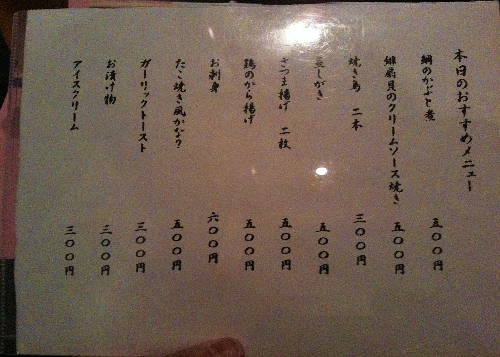 本日のおすすめメニュー
鯛のかぶと煮 五〇〇円
緋扇貝のクリームソース焼き 五〇〇円
焼き鳥 二本 三〇〇円
蒸しがき 五〇〇円
さつま揚げ 二枚 五〇〇円
鶏のから揚げ 五〇〇円
お刺身 六〇〇円
たこ焼き風かな? 五〇〇円
ガーリックトースト 三〇〇円
お漬け物 三〇〇円
アイスクリーム 三〇〇円